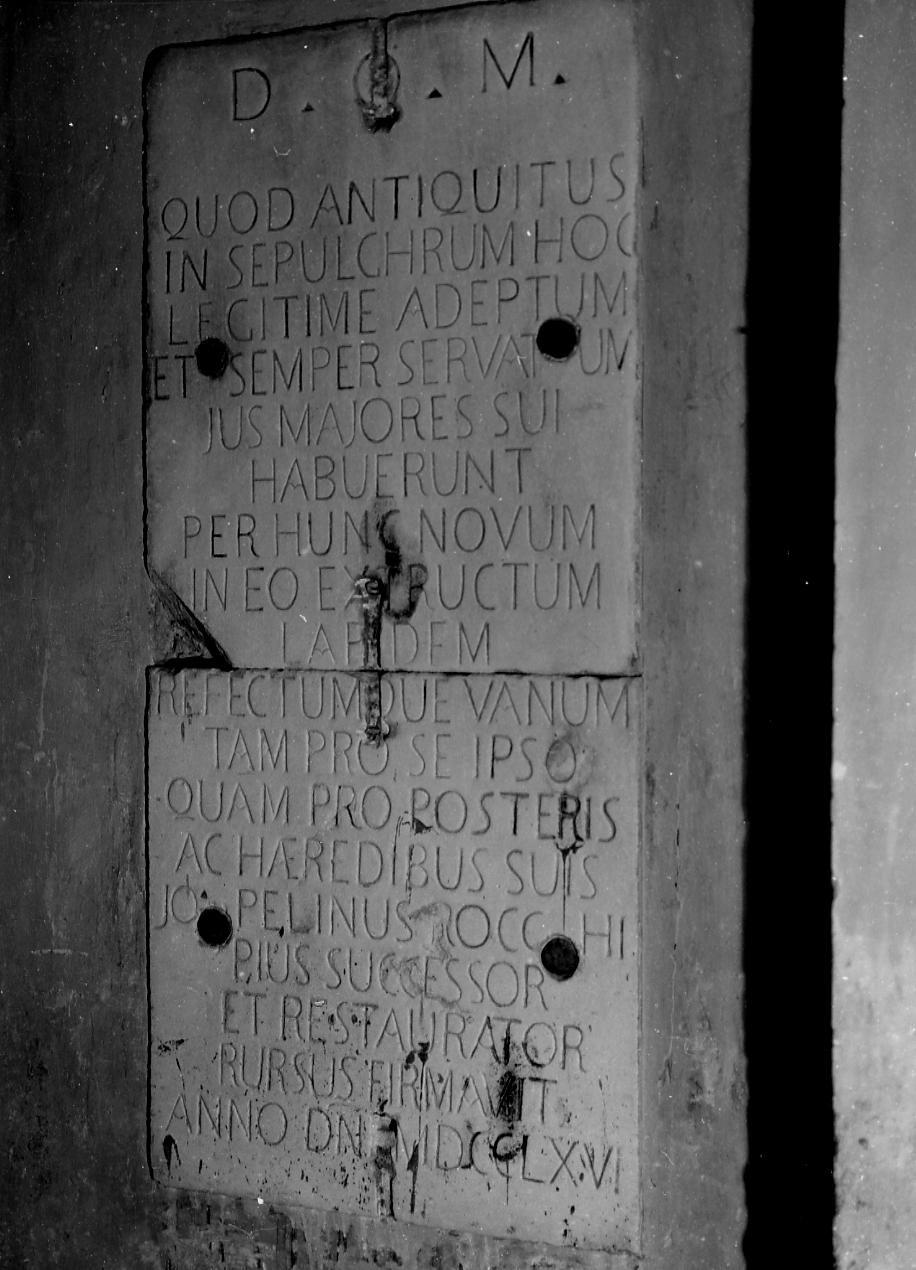 D . O . M .
QUOD ANTIQUITUS
IN SEPULCHRUM HOC
LEGITIME ADEPTUM
ET SEMPER SERVATUM
JUS MAJORES SUI
HABUERUNT
PER HUNC NOVUM
IN EO EXTRUCTUM
LAPIDEM
REFECTUMQUE VANUM
TAM PRO SE IPSO
QUAM PRO POSTERIS
AC HÆREDIBUS SUIS
JO. PELINUS ROCCHI
PIUS SUCCESSOR
ET RESTAURATOR
RURSUS FIRMAVIT
ANNO DNI MDCCLXVI